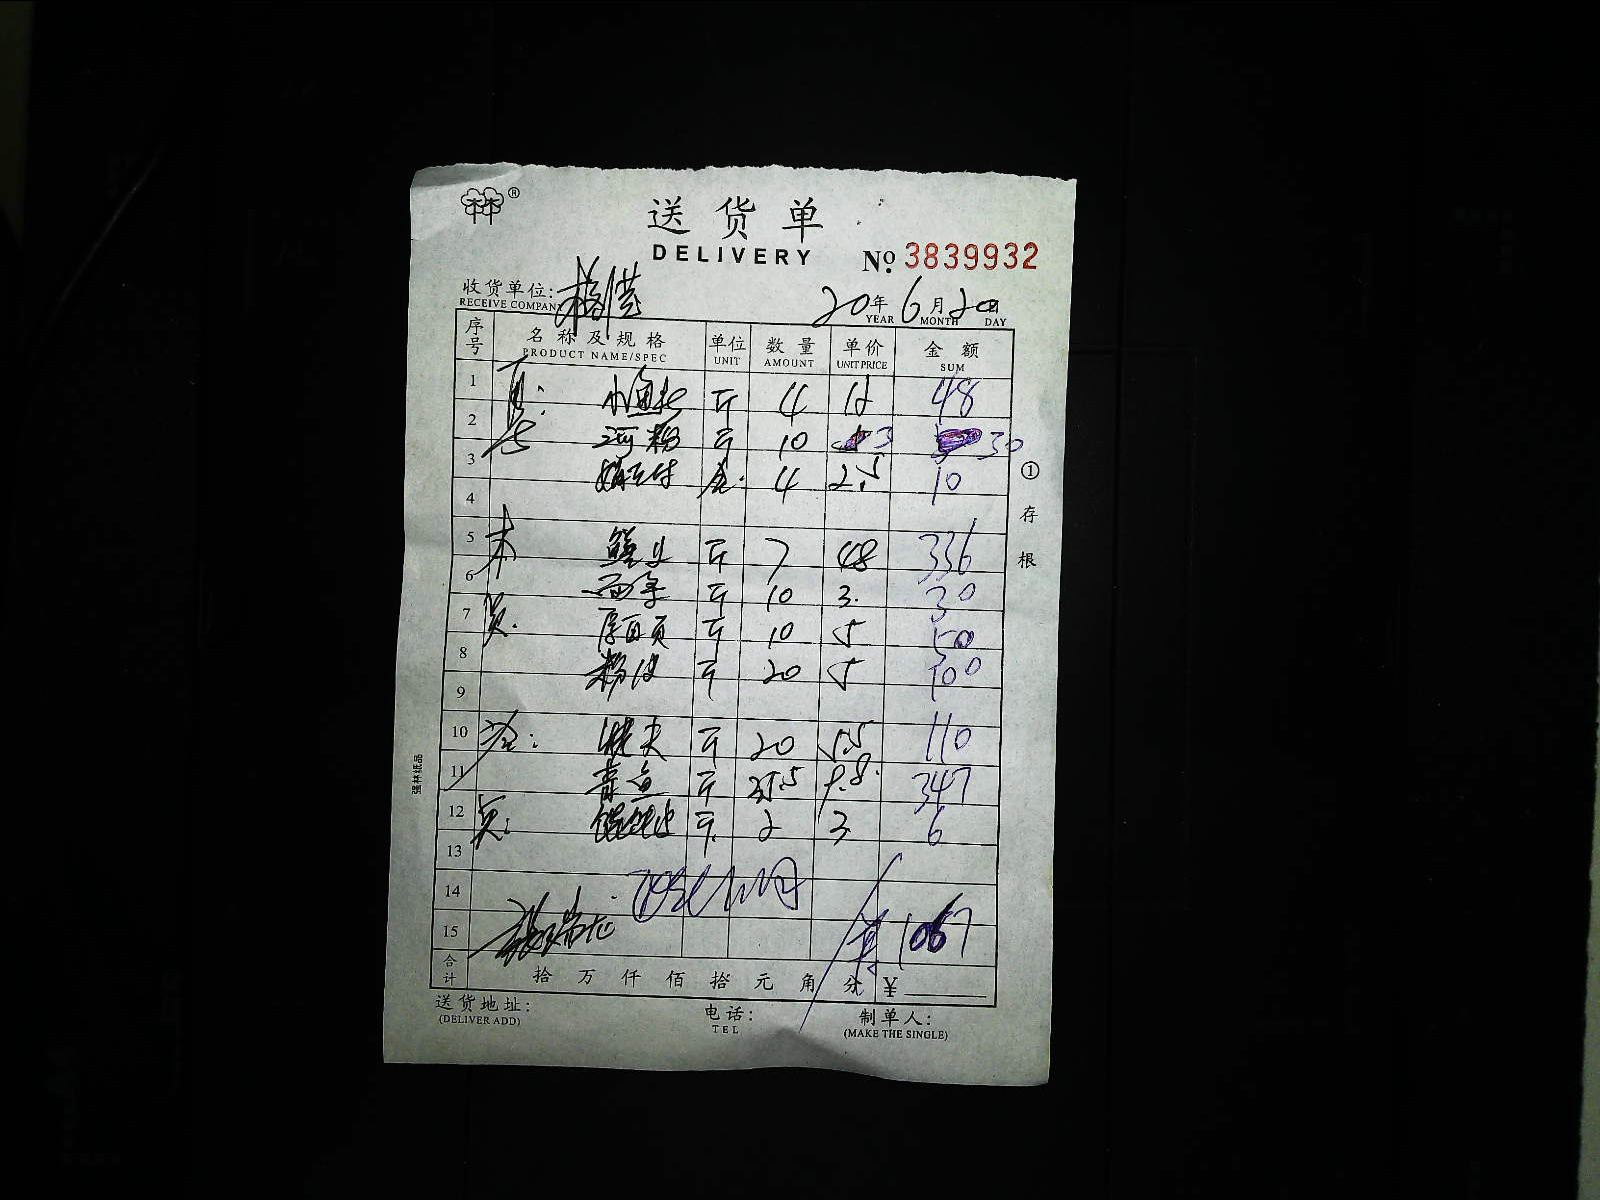 ®
送货单
DELIVERY
№ 3839932
收货单位:
RECEIVE COMPANY
20年6月20日
YEAR MONTH DAY
序号 名称及规格 单位 数量 单价 金额
PRODUCT NAME/SPEC UNIT AMOUNT UNIT PRICE SUM
1 斤 4 12 48
2 河粉 斤 10 3 30
3 4 2.5 10
4
5 斤 7 48 336
6 斤 10 3. 30
7 厚百页 斤 10 5 50
8 粉皮 斤 20 5 100
9
10 斤 20 5.5 110
11 青鱼 斤 35.5 9.8 347
12 斤 2 3 6
13
14
15 共 1067
合计 拾 万 仟 佰 拾 元 角 分 ¥
①存根
强林纸品
送货地址:
(DELIVER ADD)
电话:
TEL
制单人:
(MAKE THE SINGLE)